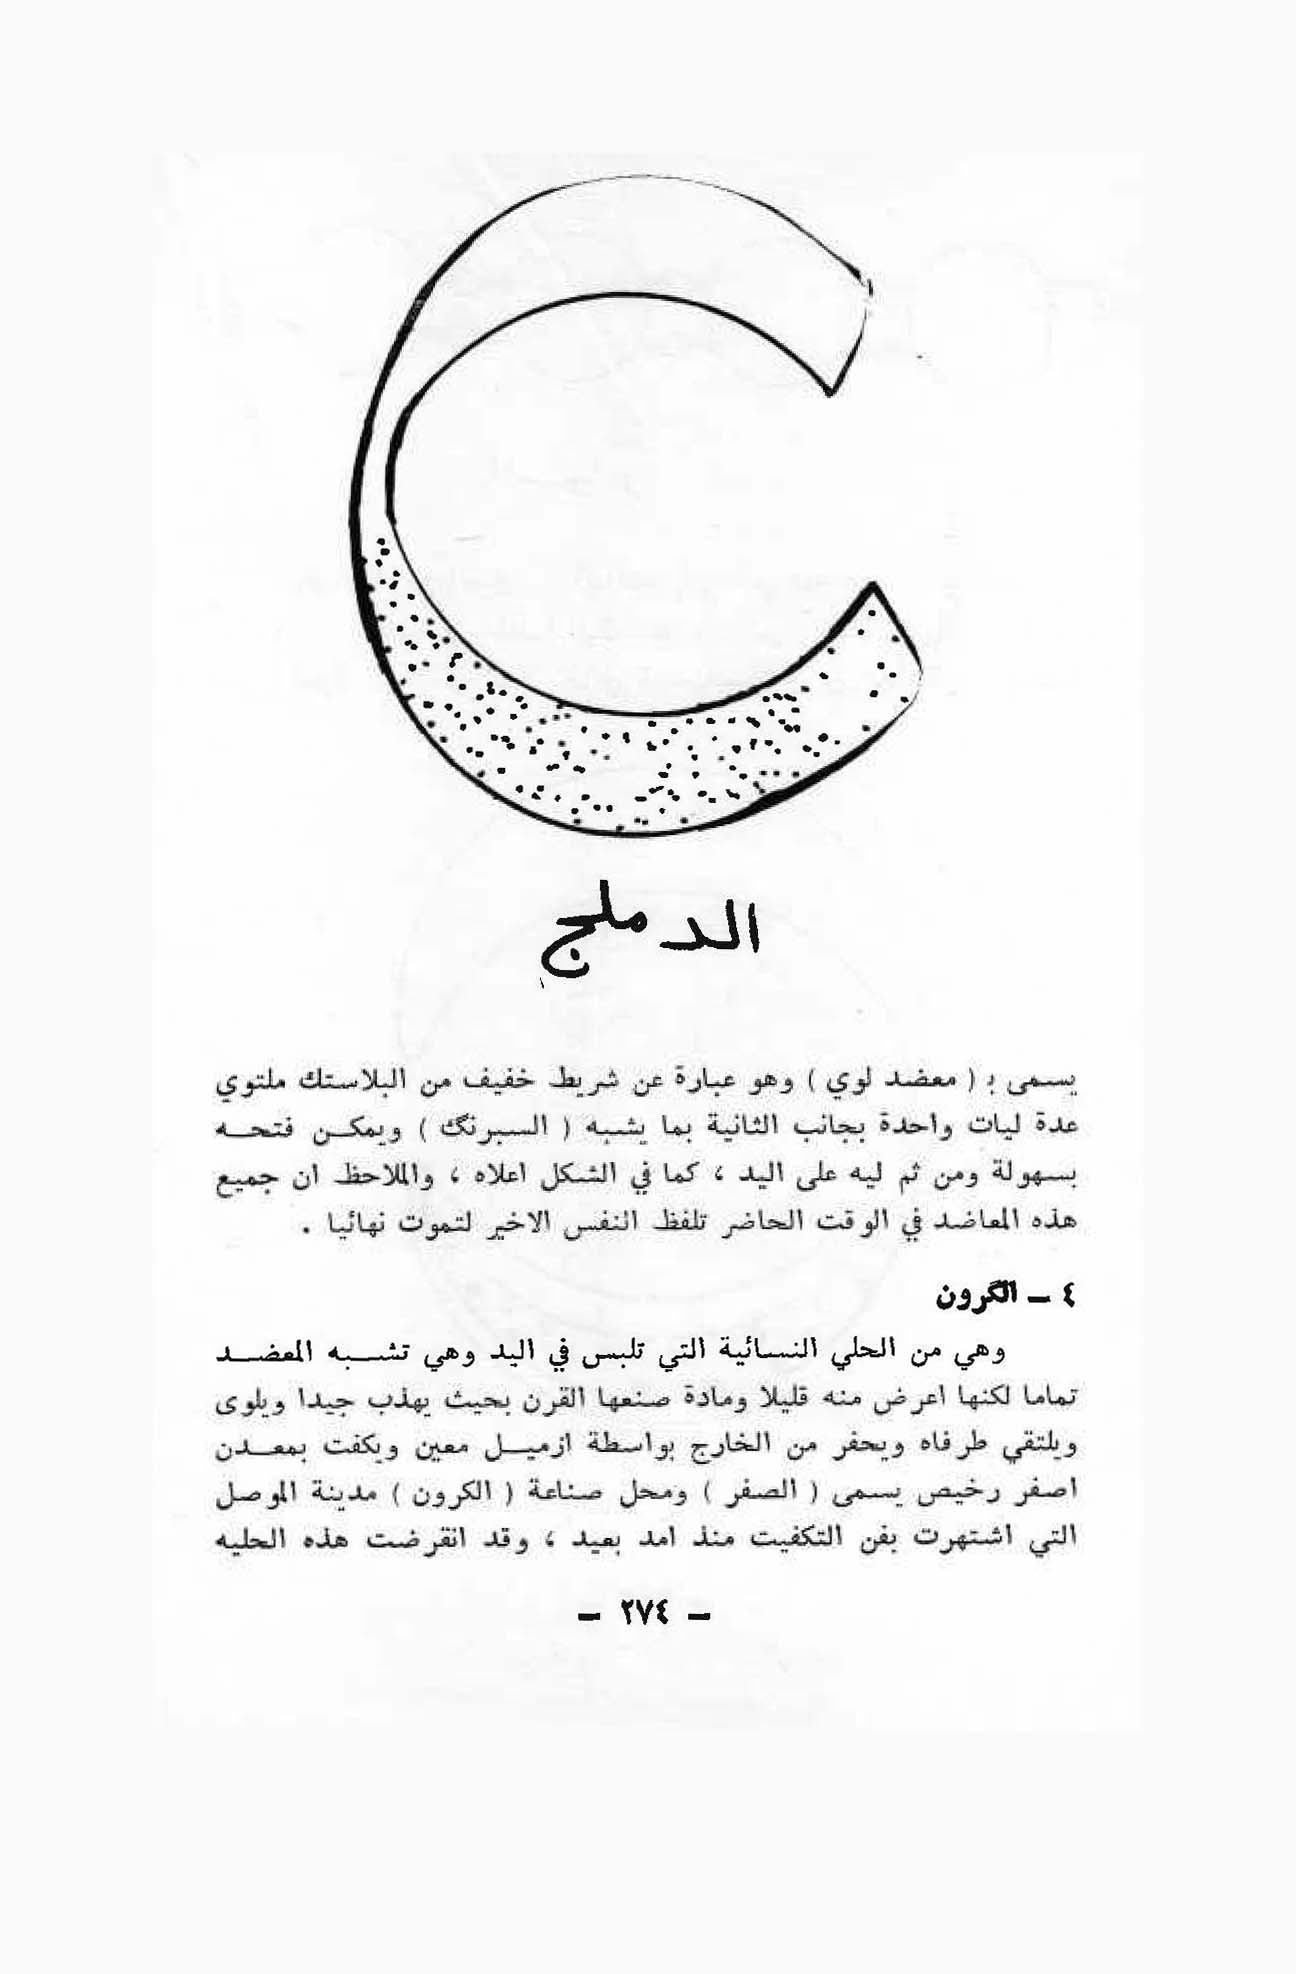 الدملج
يسمى بـ ( معضد لوي ) وهو عبارة عن شريط خفيف من البلاستك ملتوي
عدة ليات واحدة بجانب الثانية بما يشبه ( السبرنگ ) ويمكن فتحه
بسهولة ومن ثم ليه على اليد ، كما في الشكل اعلاه ، والملاحظ ان جميع
هذه المعاضد في الوقت الحاضر تلفظ النفس الاخير لتموت نهائيا .
٤ – الگرون
وهي من الحلي النسائية التي تلبس في اليد وهي تشبه المعضد
تماما لكنها اعرض منه قليلا ومادة صنعها القرن بحيث يهذب جيدا ويلوى
ويلتقي طرفاه ويحفر من الخارج بواسطة ازميل معين ويكفت بمعدن
اصفر رخيص يسمى ( الصفر ) ومحل صناعة ( الكرون ) مدينة الموصل
التي اشتهرت بفن التكفيت منذ امد بعيد ، وقد انقرضت هذه الحليه
– ٢٧٤ –